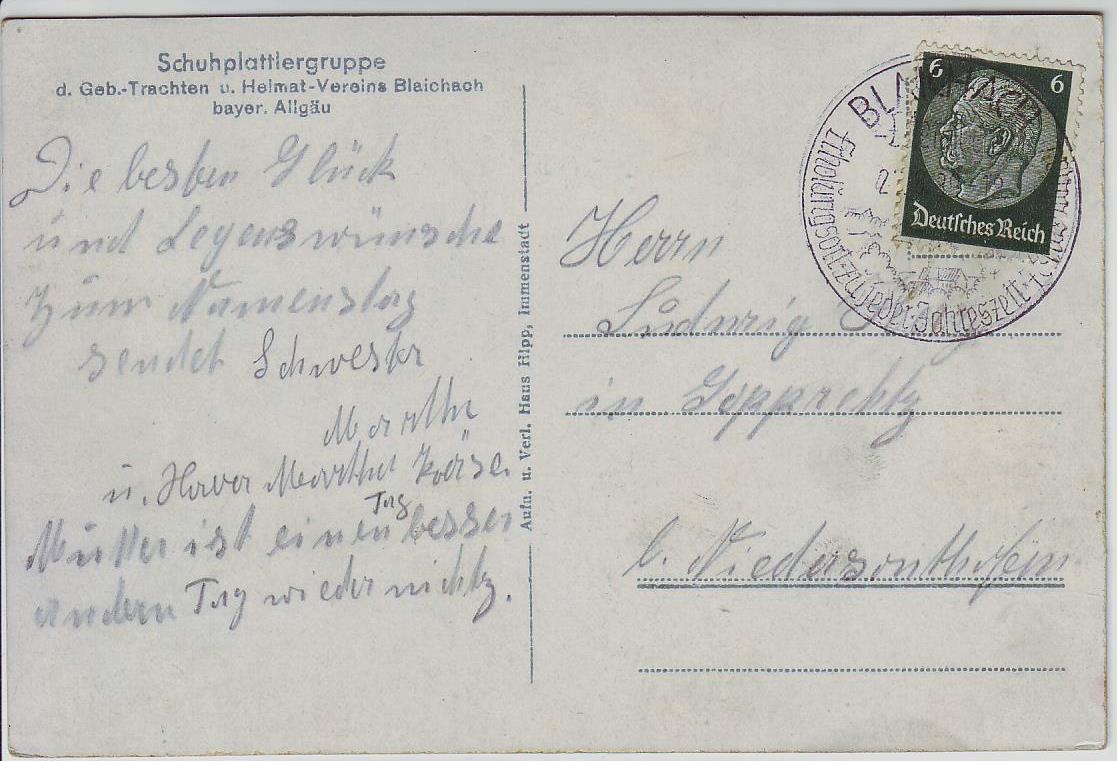 Schuhplattlergruppe
d. Geb.-Trachten u. Heimat-Vereins Blaichach
bayer. Allgäu
Die besten Glück
und Segenswünsche
zum Namenstag
sendet Schwester
Martha
u.
Tag
Mutter ist einen besser
andern Tag wieder nichts.
Aufn. u. Verl. Hans Hipp, Immenstadt
6 6
Deutsches Reich
BLAICHACH
Erholungsort zu jeder Jahreszeit
Herrn
Ludwig
in
b. Niedersonthofen